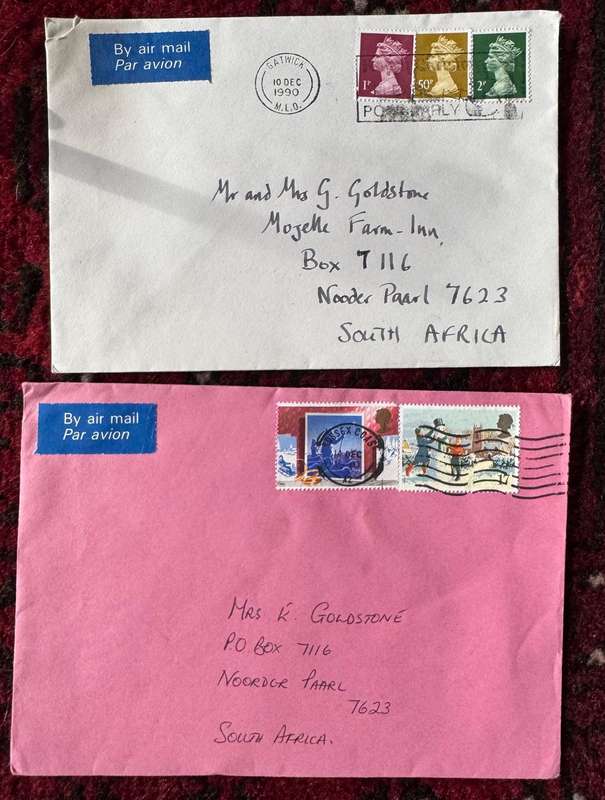 By air mail
Par avion
GATWICK
10 DEC
1990
M.L.O.
1P
50P
2P
Mr and Mrs G. Goldstone
Mozelle Farm-Inn,
Box 7116
Nooder Paarl 7623
SOUTH AFRICA
By air mail
Par avion
DEC
MRS K. GOLDSTONE
P.O. BOX 7116
NOORDER PAARL
7623
SOUTH AFRICA.